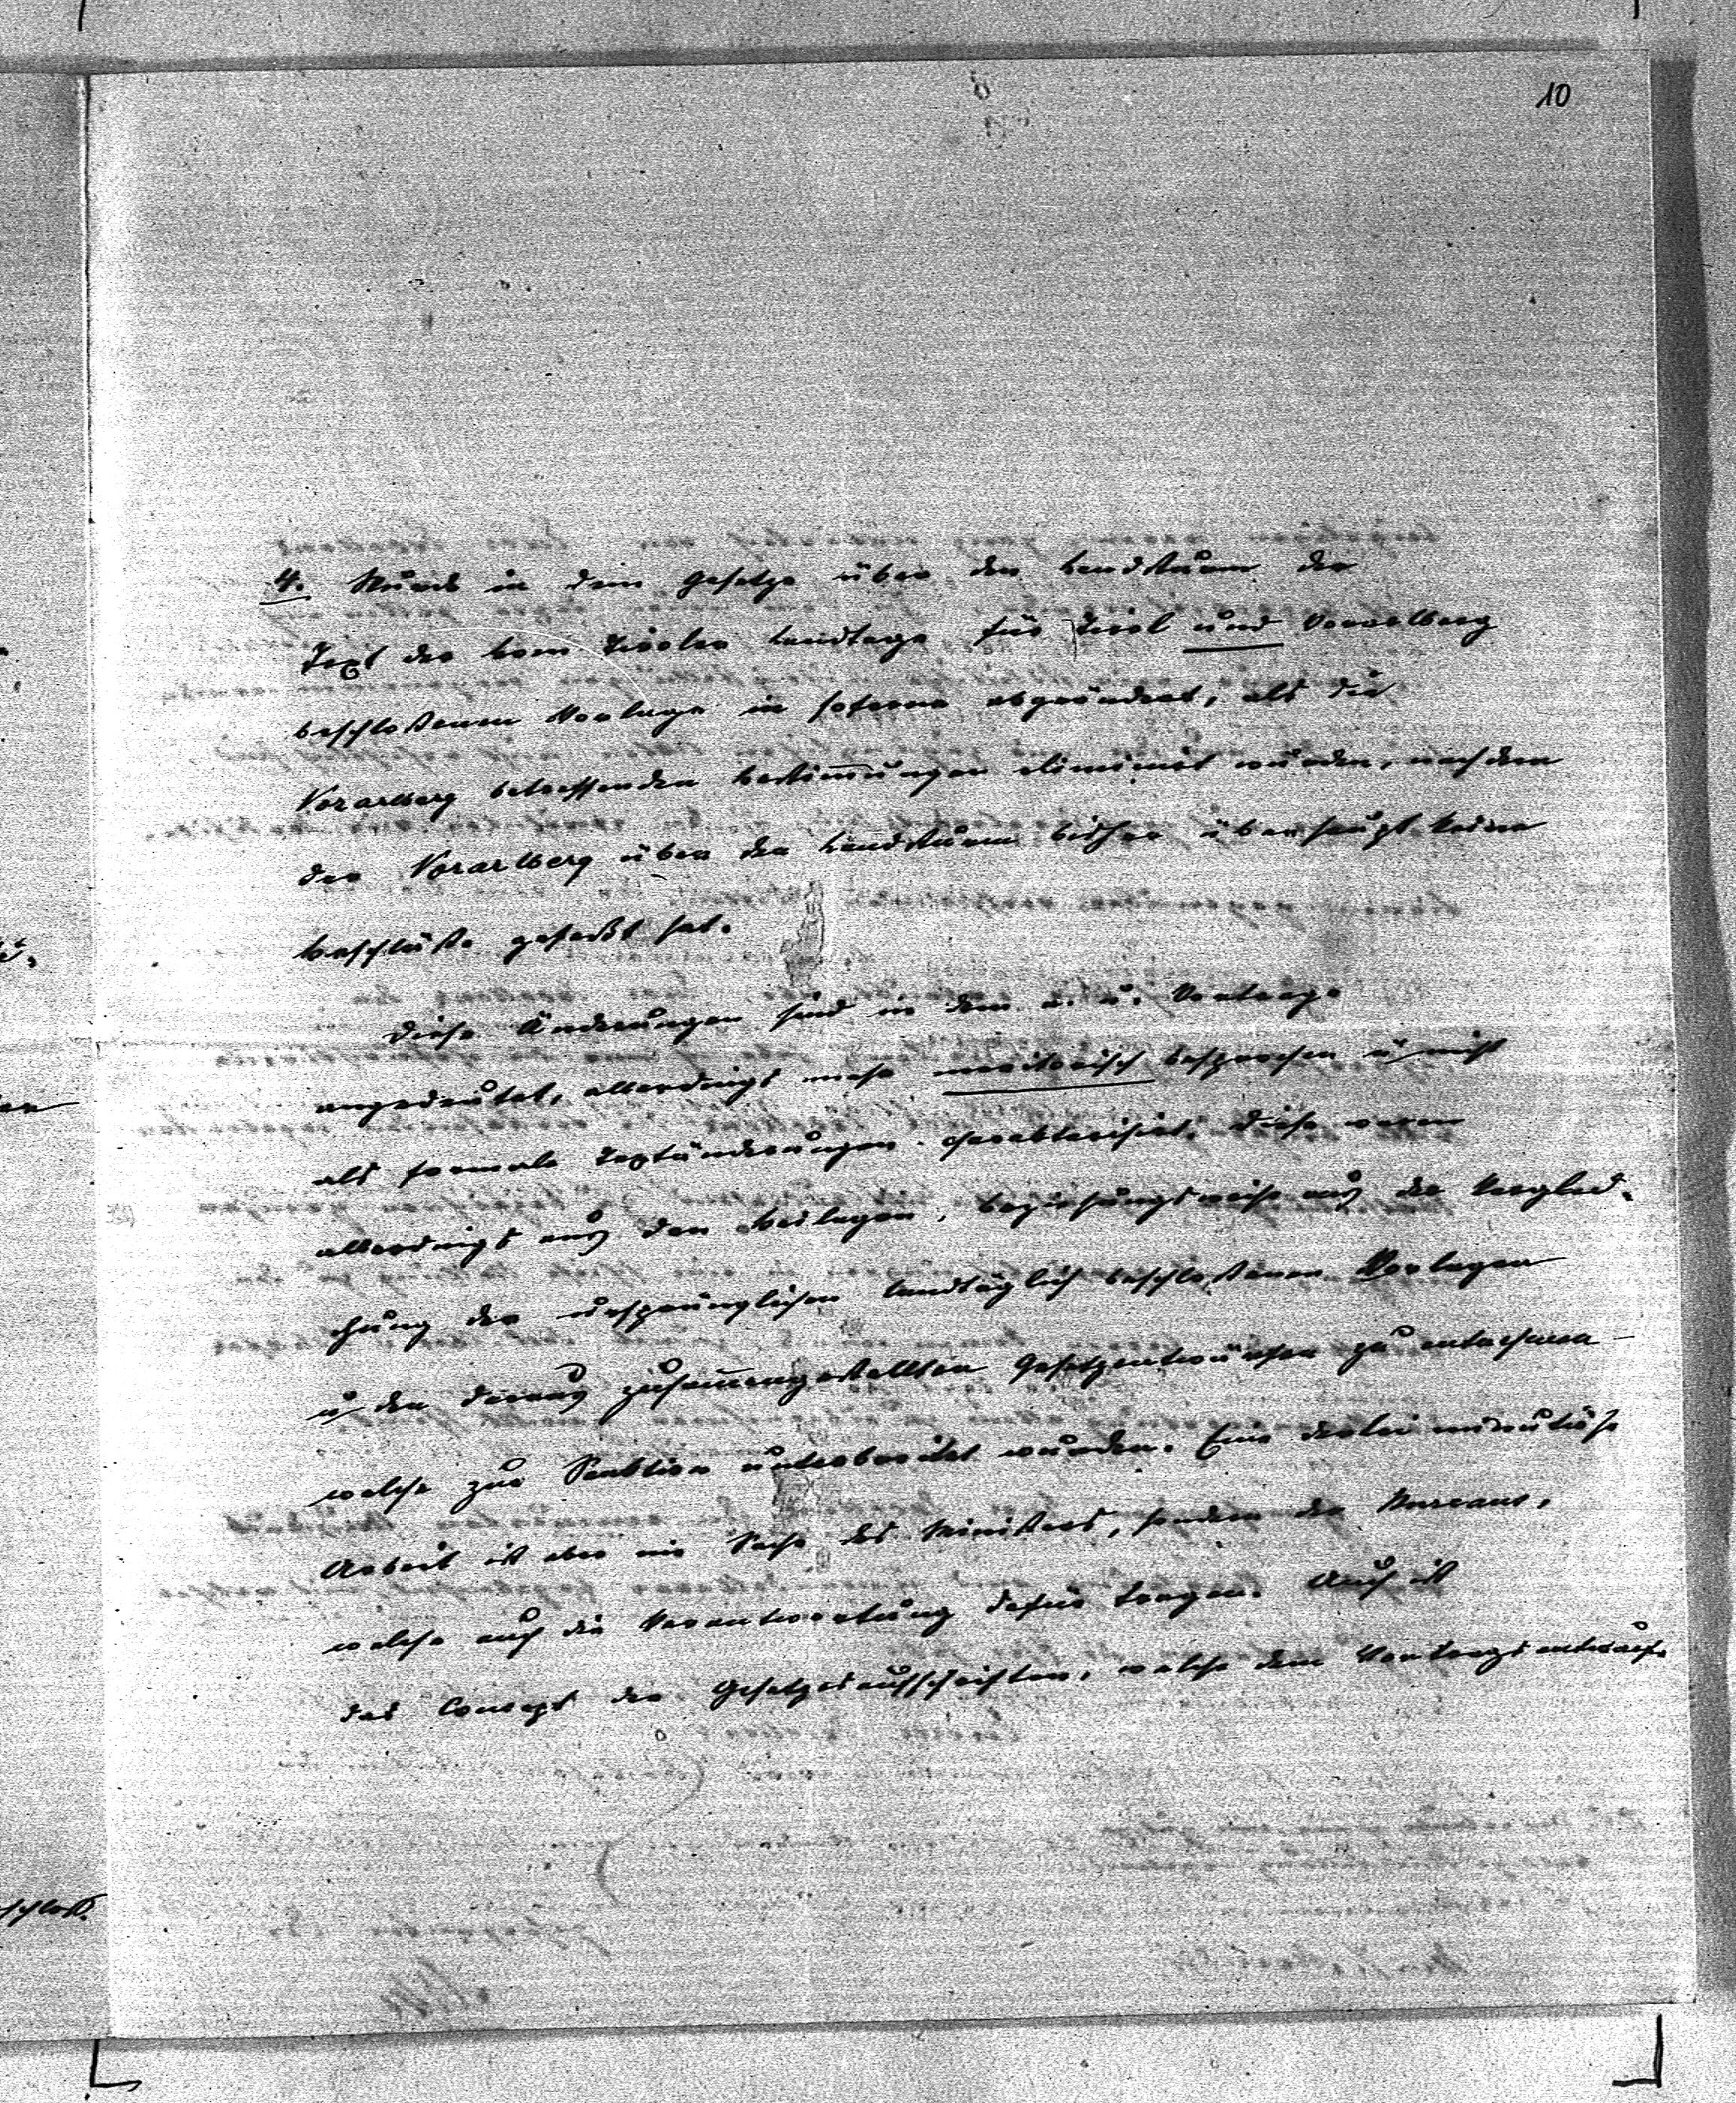 10
4. Wurde in dem Gesetze über den Landsturm der
Text der vom Tiroler Landtage für Tirol und Vorarlberg
beschloßenen Vorlage in soferne abgeändert, als die
Vorarlberg betreffenden Bestimmungen eliminirt wurden, nachdem
der Vorarlberg über den Landsturm bisher überhaupt keine
Beschlüße gefaßt hat.
Diese Änderungen sind in dem a. u. Vortrage
angedeutet, allerdings mehr meritorisch besprochen u nicht
als formale Textänderungen charakterisirt. Diese waren
allerdings aus den Beilagen, beziehungsweise aus der Verglei-
chung der ursprünglichen landtäglich beschloßenen Vorlagen
u den daraus zusammengestellten Gesetzentwürfen zu entnehmen
welche zur Sanktion unterbreitet wurden. Eine derlei minutiöse
Arbeit ist aber nie Sache des Ministers, sondern der Bureaus,
welche auch die Verantwortung dafür tragen. Auch ist
das Concept der Gesetzesaufschriften, welche dem Vortragsentwurfe
schloß.